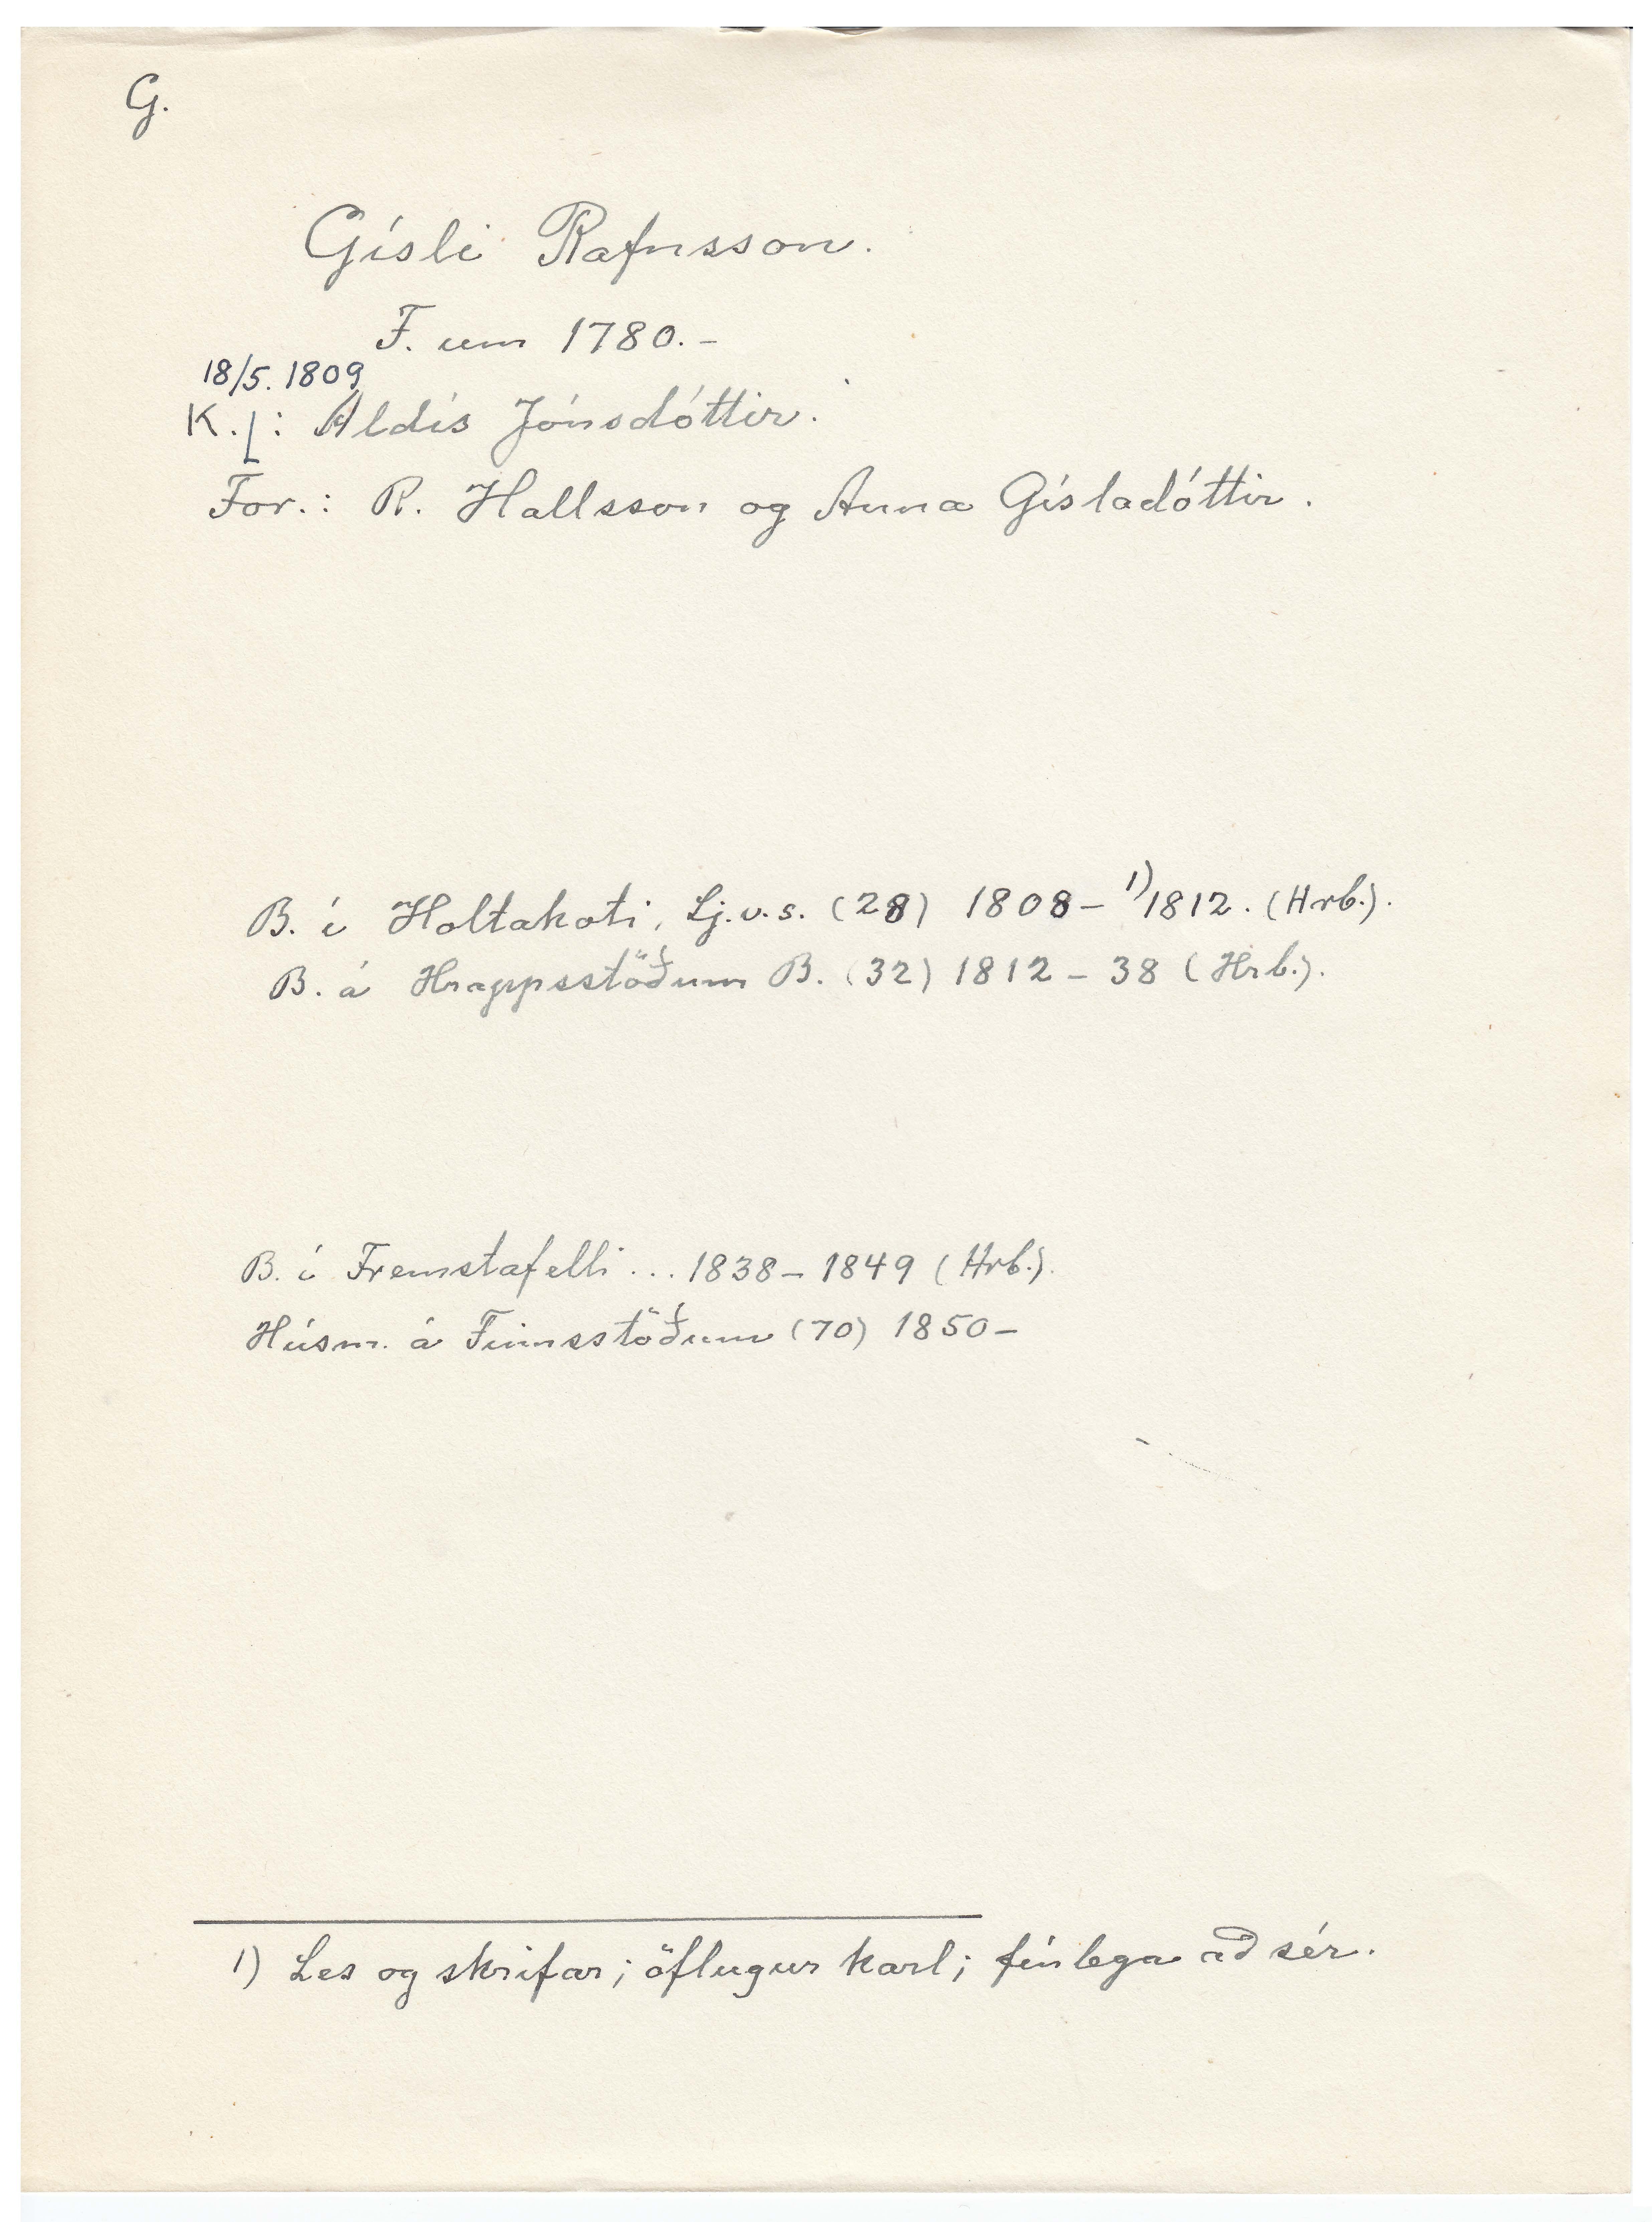 G.
Gísli Rafnsson.
F. um 1780.-
18/5. 1809
K.: Aldís Jónsdóttir.
For.: R. Hallsson og Anna Gísladóttir.
B. í Holtakoti, Lj.v.s. (28) 1808- 1) 1812. (Hrb.).
B. á Hrappsstöðum B. (32) 1812-38 (Hrb.).
B. í Fremstafelli ... 1838-1849 (Hrb.).
Húsm. á Finnsstöðum (70) 1850-
1) Les og skrifar; öflugur karl; fínlega að sér.